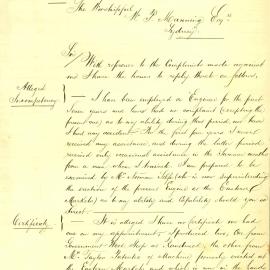 The Worshipful
W. P. Manning Esqre
Sydney
Sir
With reference to the Complaints made against
me I have the honor to reply thereto as follows,
Alleged
Incompetency
I have been employed as Engineer for the past
Seven years and have had no complaint (excepting the
present one) as to my ability during this period, nor have
I had any accident. For the first five years I never
received any assistance, and during the latter period
received only occasional assistance in the Summer months
from a man whom I trained. I am prepared to be
examined by Mr Norman Selfe (who is now superintending
the erection of the present Engine at the Eastern
Markets) as to my ability and Capability should you so
direct.
Certificate
It is alleged I have no certificate nor had
one on my appointment. I produced two, One from
Government Work Shop as Reinstated, the other from
Mr Taylor Patentee of Machine formerly erected at
the Eastern Markets and which is now in the hands